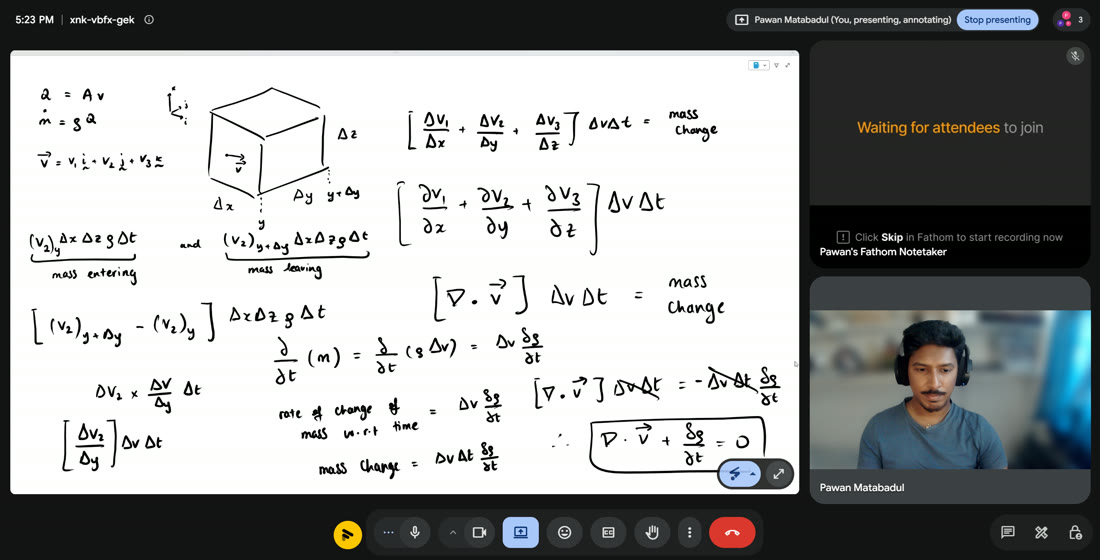 5:23 PM | xnk-vbfx-gek
Pawan Matabadul (You, presenting, annotating)
Stop presenting
3
Q = A v
ṁ = ρ Q
v⃗ = v₁ i + v₂ j + v₃ k
k
j
i
v⃗
Δx
Δy
Δz
y
y + Δy
(v₂)_y Δx Δz ρ Δt and (v₂)_{y+Δy} Δx Δz ρ Δt
mass entering
mass leaving
[ (v₂)_{y+Δy} - (v₂)_y ] Δx Δz ρ Δt
Δv₂ × Δv/Δy Δt
[ Δv₂/Δy ] Δv Δt
[ Δv₁/Δx + Δv₂/Δy + Δv₃/Δz ] Δv Δt = mass change
[ ∂v₁/∂x + ∂v₂/∂y + ∂v₃/∂z ] Δv Δt
[ ∇ · v⃗ ] Δv Δt = mass change
∂/∂t (m) = ∂/∂t (ρ Δv) = Δv ∂ρ/∂t
rate of change of mass w.r.t time = Δv ∂ρ/∂t
mass change = Δv Δt ∂ρ/∂t
[ ∇ · v⃗ ] Δv Δt = - Δv Δt ∂ρ/∂t
∴ ∇ · v⃗ + ∂ρ/∂t = 0
Waiting for attendees to join
Click Skip in Fathom to start recording now
Pawan's Fathom Notetaker
Pawan Matabadul